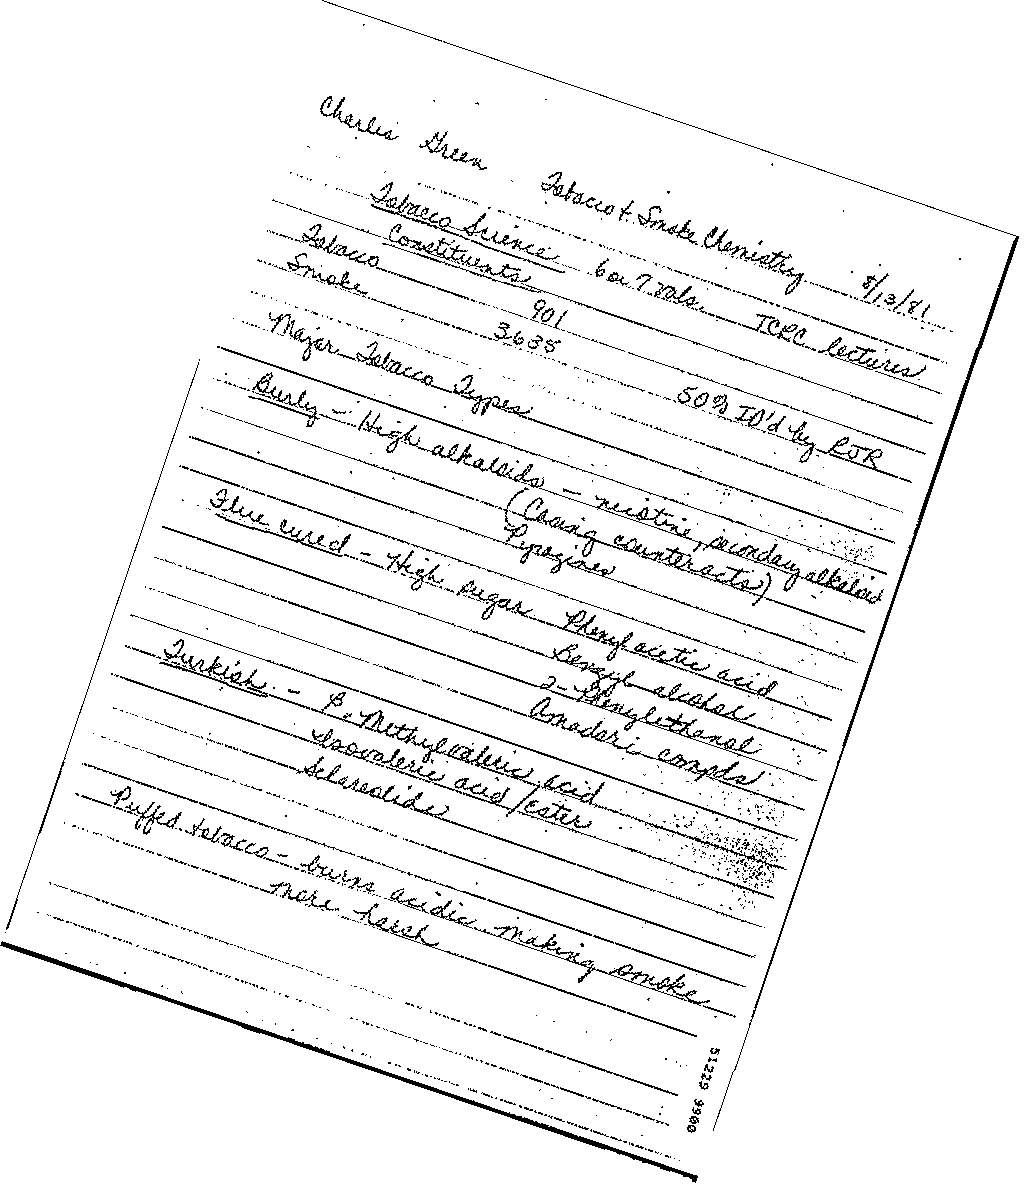 Charlie Green Tobacco & Smoke Chemistry 8/13/81
Tobacco Science 6 or 7 vols. TCRC lectures
Constituents
Tobacco 901
Smoke 3635 50% ID'd by RJR
Major Tobacco Types
Burly - High alkaloids - nicotine, secondary alkaloid
(Casing counteracts)
Pyrazines
Flue cured - High sugar Phenyl acetic acid
Benzyl alcohol
2-Phenylethanol
Amadori compds
Turkish - β-Methylvaleric acid
Isovaleric acid/ester
Sclareolide
Puffed tobacco - burns acidic making smoke
more harsh
51229 9900